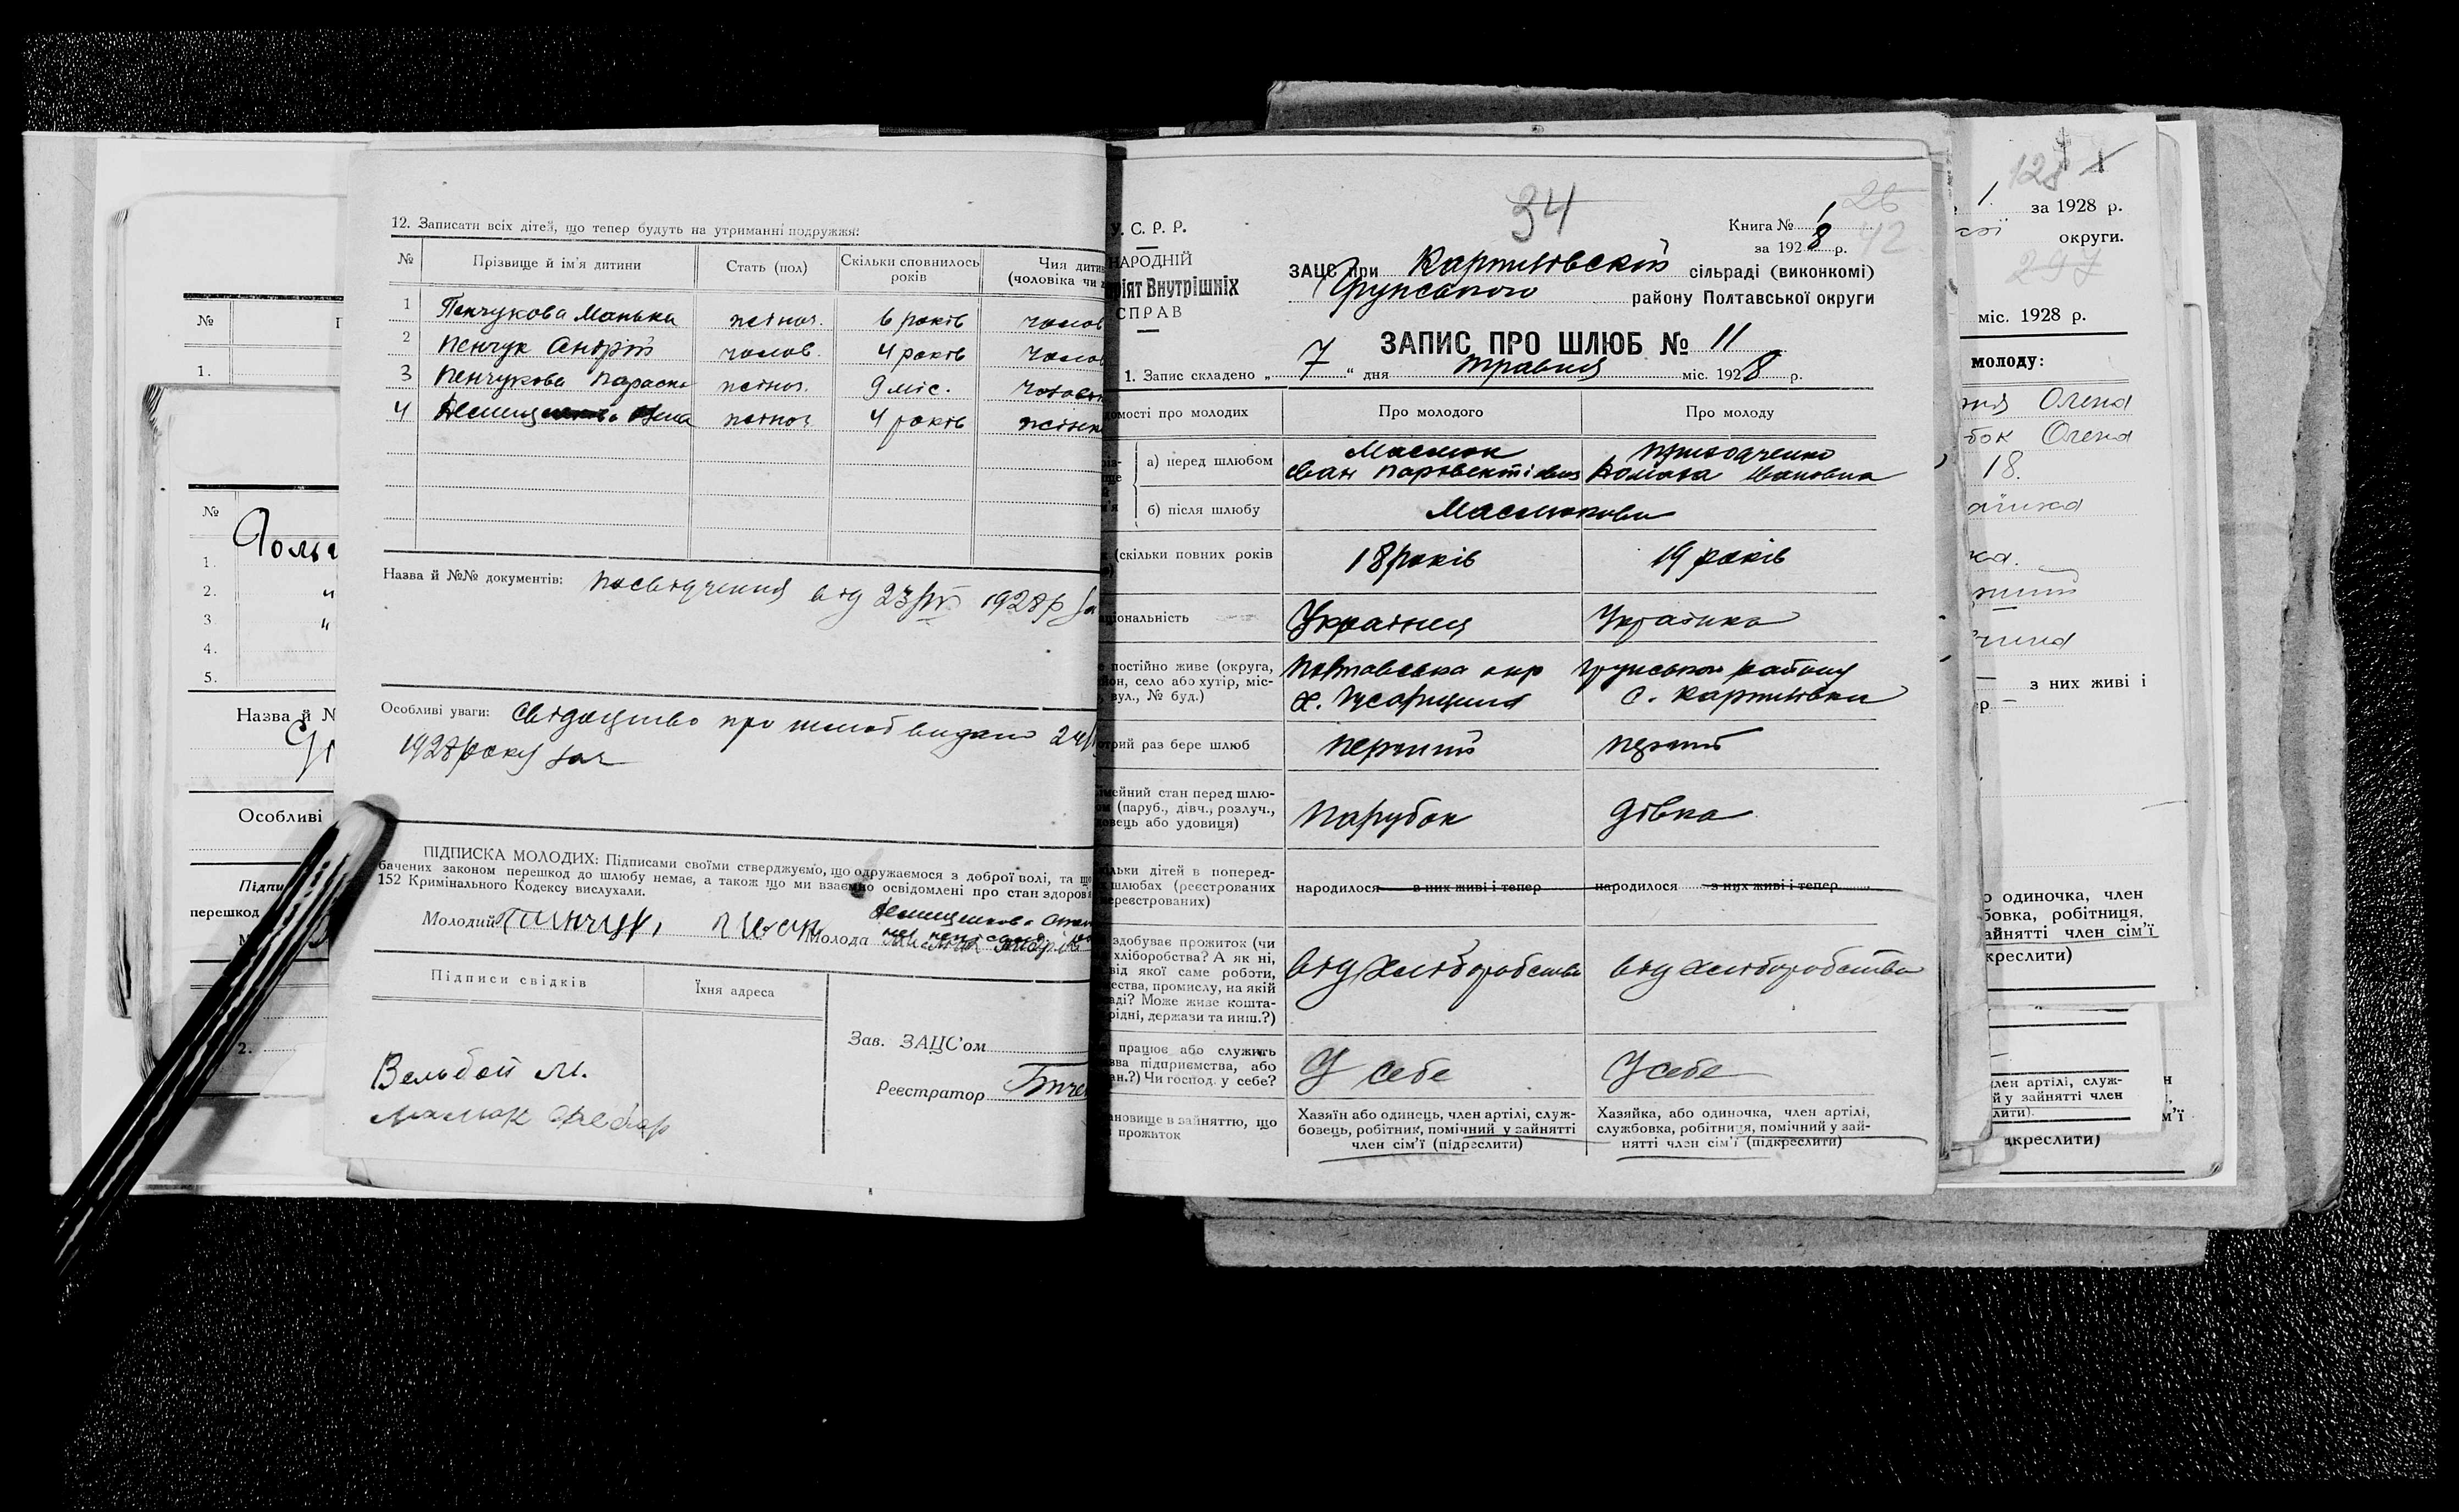 12. Записати всіх дітей, що тепер будуть на утриманні подружжя:
№ Прізвище й ім'я дитини Стать (пол) Скільки сповнилось років Чия дити (чоловіка чи
1 Пенчукова Манька жіноч. 6 років чолов
2 Пенчук Андрій чолов. 4 років чолов
3 Пенчукова Параска жіноч. 9 міс. чолов
4 жіноч 4 років жінк
Назва й №№ документів: посвідчення від 23/IV 1928 р за
Особливі уваги: свідоцтво про шлюб видано 24/
1928 року за №
ПІДПИСКА МОЛОДИХ: Підписами своїми стверджуємо, що одружаємося з доброї волі, та що
бачених законом перешкод до шлюбу немає, а також що ми взаємно освідомлені про стан здоров
152 Кримінального Кодексу вислухали.
Молодий Молода
Підписи свідків Їхня адреса
Зав. ЗАЦС'ом
Реєстратор
Вельбой М.
№
1.
№
1.
2. "
3 "
4.
5.
Назва й №
Особливі
Підпи
перешкод
2.
34
26
42
У. С. Р. Р.
НАРОДНІЙ
ріят Внутрішніх
СПРАВ
Книга № 1
за 1928 р.
ЗАЦС при Карпилівській сільраді (виконкомі)
Грунського району Полтавської округи
ЗАПИС ПРО ШЛЮБ № 11
1. Запис складено „ 7 “ дня травня міс. 1928 р.
домості про молодих Про молодого Про молоду
а) перед шлюбом
Маслюк Приходченко
Іван Домаха Івановна
б) після шлюбу Маслюкови
(скільки повних років 18 років 19 років
ціональність Українец Українка
постійно живе (округа,
йон, село або хутір, міс-
вул., № буд.)
Полтавська окр Грунського району
х. Гусарщина с. Карпилівка
отрий раз бере шлюб перший перший
імейний стан перед шлю-
ом (паруб., дівч., розлуч.,
довець або удовиця)
парубок дівка
ільки дітей в поперед-
шлюбах (реєстрованих
нереєстрованих)
народилося з них живі і тепер народилося з них живі і тепер
здобуває прожиток (чи
хліборобства? А як ні,
від якої саме роботи,
ества, промислу, на якій
аді? Може живе кошта-
рідні, держави та инш.?)
від хліборобства від хліборобства
працює або служить
зва підприємства, або
ан.?) Чи господ. у себе?
У себе У себе
ановище в зайняттю, що
прожиток
Хазяїн або одинець, член артілі, служ-
бовець, робітник, помічний у зайнятті
член сім'ї (підреслити)
Хазяйка, або одиночка, член артілі,
службовка, робітниця, помічний у зай-
нятті член сім'ї (підкреслити)
128
1. за 1928 р.
округи.
297
міс. 1928 р.
молоду:
Олена
бок Олена
18.
з них живі і
о одиночка, член
бовка, робітниця,
айнятті член сім'ї
креслити)
член артілі, служ-
й у зайнятті член
лити).
м'ї
дкреслити)